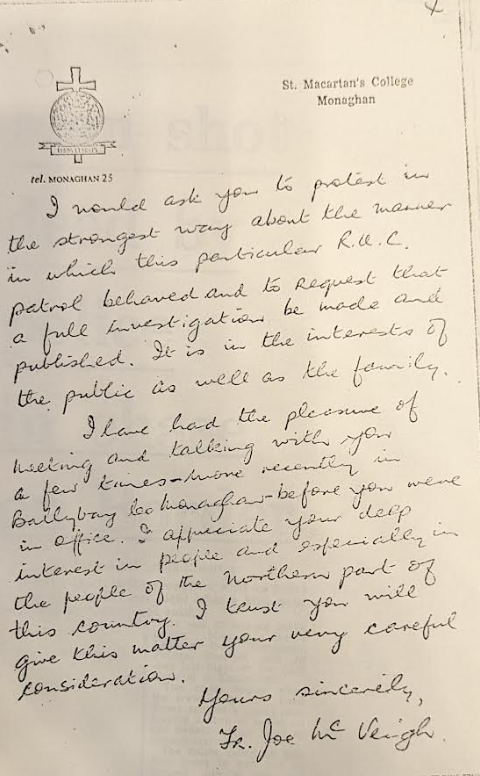 St. Macartan's College
Monaghan
tel. MONAGHAN 25
I would ask you to protest in
the strongest way about the manner
in which this particular R.U.C.
patrol behaved and to request that
a full investigation be made and
published. It is in the interests of
the public as well as the family.
I have had the pleasure of
meeting and talking with you
a few times - more recently in
Ballybay Co Monaghan - before you were
in office. I appreciate your deep
interest in people and especially in
the people of the Northern part of
this country. I trust you will
give this matter your very careful
consideration.
Yours sincerely,
Fr. Joe Mc Veigh.